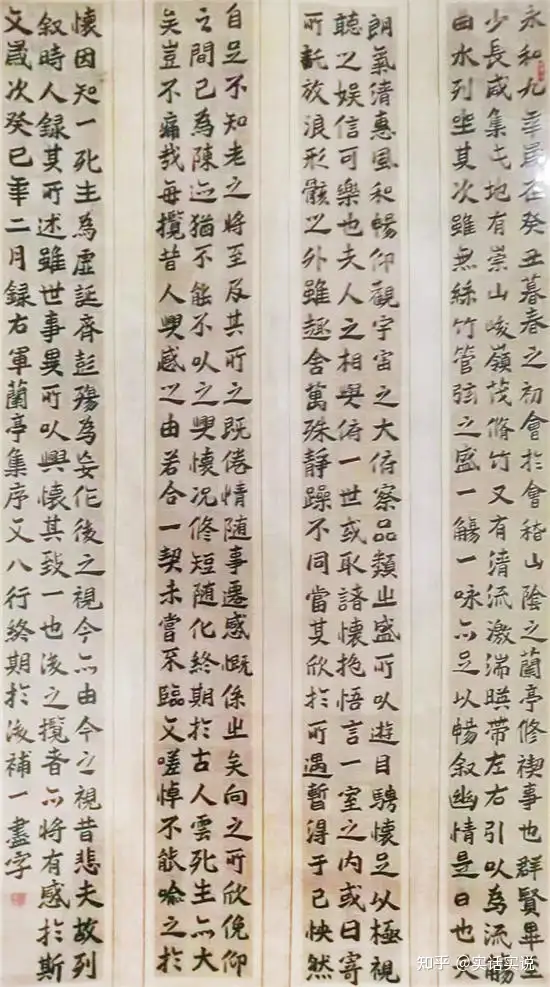 永和九年歲在癸丑暮春之初會於會稽山陰之蘭亭修禊事也群賢畢至
少長咸集此地有崇山峻嶺茂脩竹又有清流激湍暎帶左右引以為流觴
曲水列坐其次雖無絲竹管弦之盛一觴一咏亦足以暢叙幽情是日也天
朗氣清惠風和暢仰觀宇宙之大俯察品類之盛所以遊目騁懷足以極視
聽之娛信可樂也夫人之相與俯一世或取諸懷抱悟言一室之内或因寄
所託放浪形骸之外雖趣舍萬殊靜躁不同當其欣於所遇暫得于己怏然
自足不知老之將至及其所之既倦情随事遷感慨係之矣向之所欣俛仰
之間已為陳迹猶不能不以之興懷况修短随化終期於古人雲死生亦大
矣豈不痛哉每攬昔人興感之由若合一契未嘗不臨文嗟悼不能喻之於
懷因知一死生為虛誕齊彭殤為妄作後之視今亦由今之視昔悲夫故列
叙時人録其所述雖世事異所以興懷其致一也後之攬者亦將有感於斯
文歲次癸巳年二月録右軍蘭亭集序文八行終期於後補一盡字
知乎 @实话实说